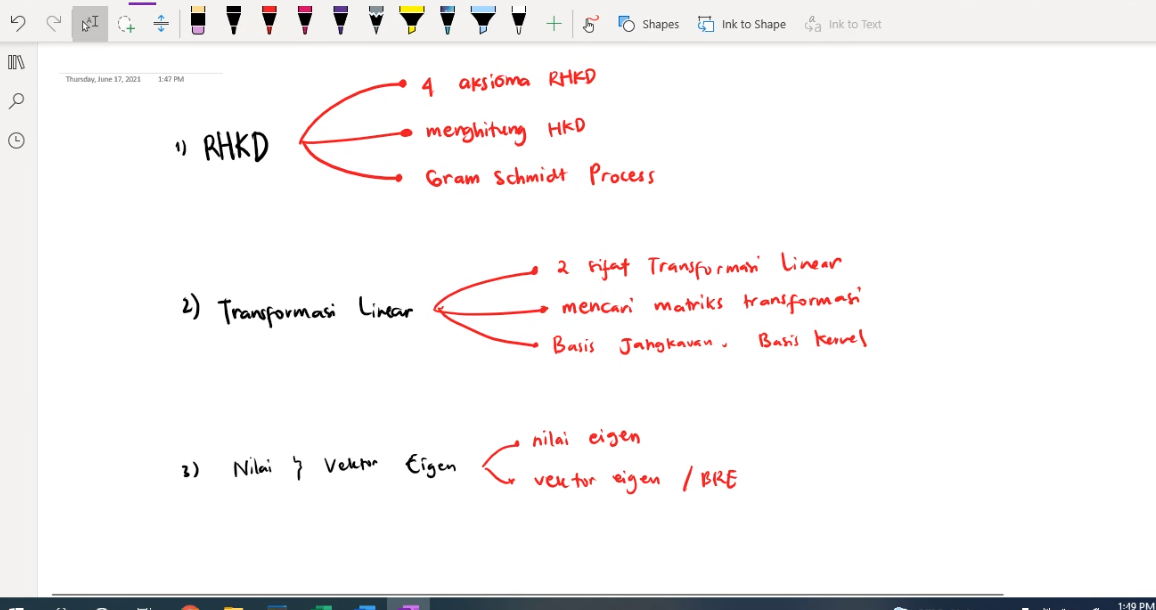 Shapes Ink to Shape Ink to Text
Thursday, June 17, 2021 1:47 PM
1) RHKD
4 aksioma RHKD
menghitung HKD
Gram Schmidt Process
2) Transformasi Linear
2 sifat Transformasi Linear
mencari matriks transformasi
Basis Jangkauan, Basis Kernel
3) Nilai & Vektor Eigen
nilai eigen
vektor eigen / BRE
1:49 PM